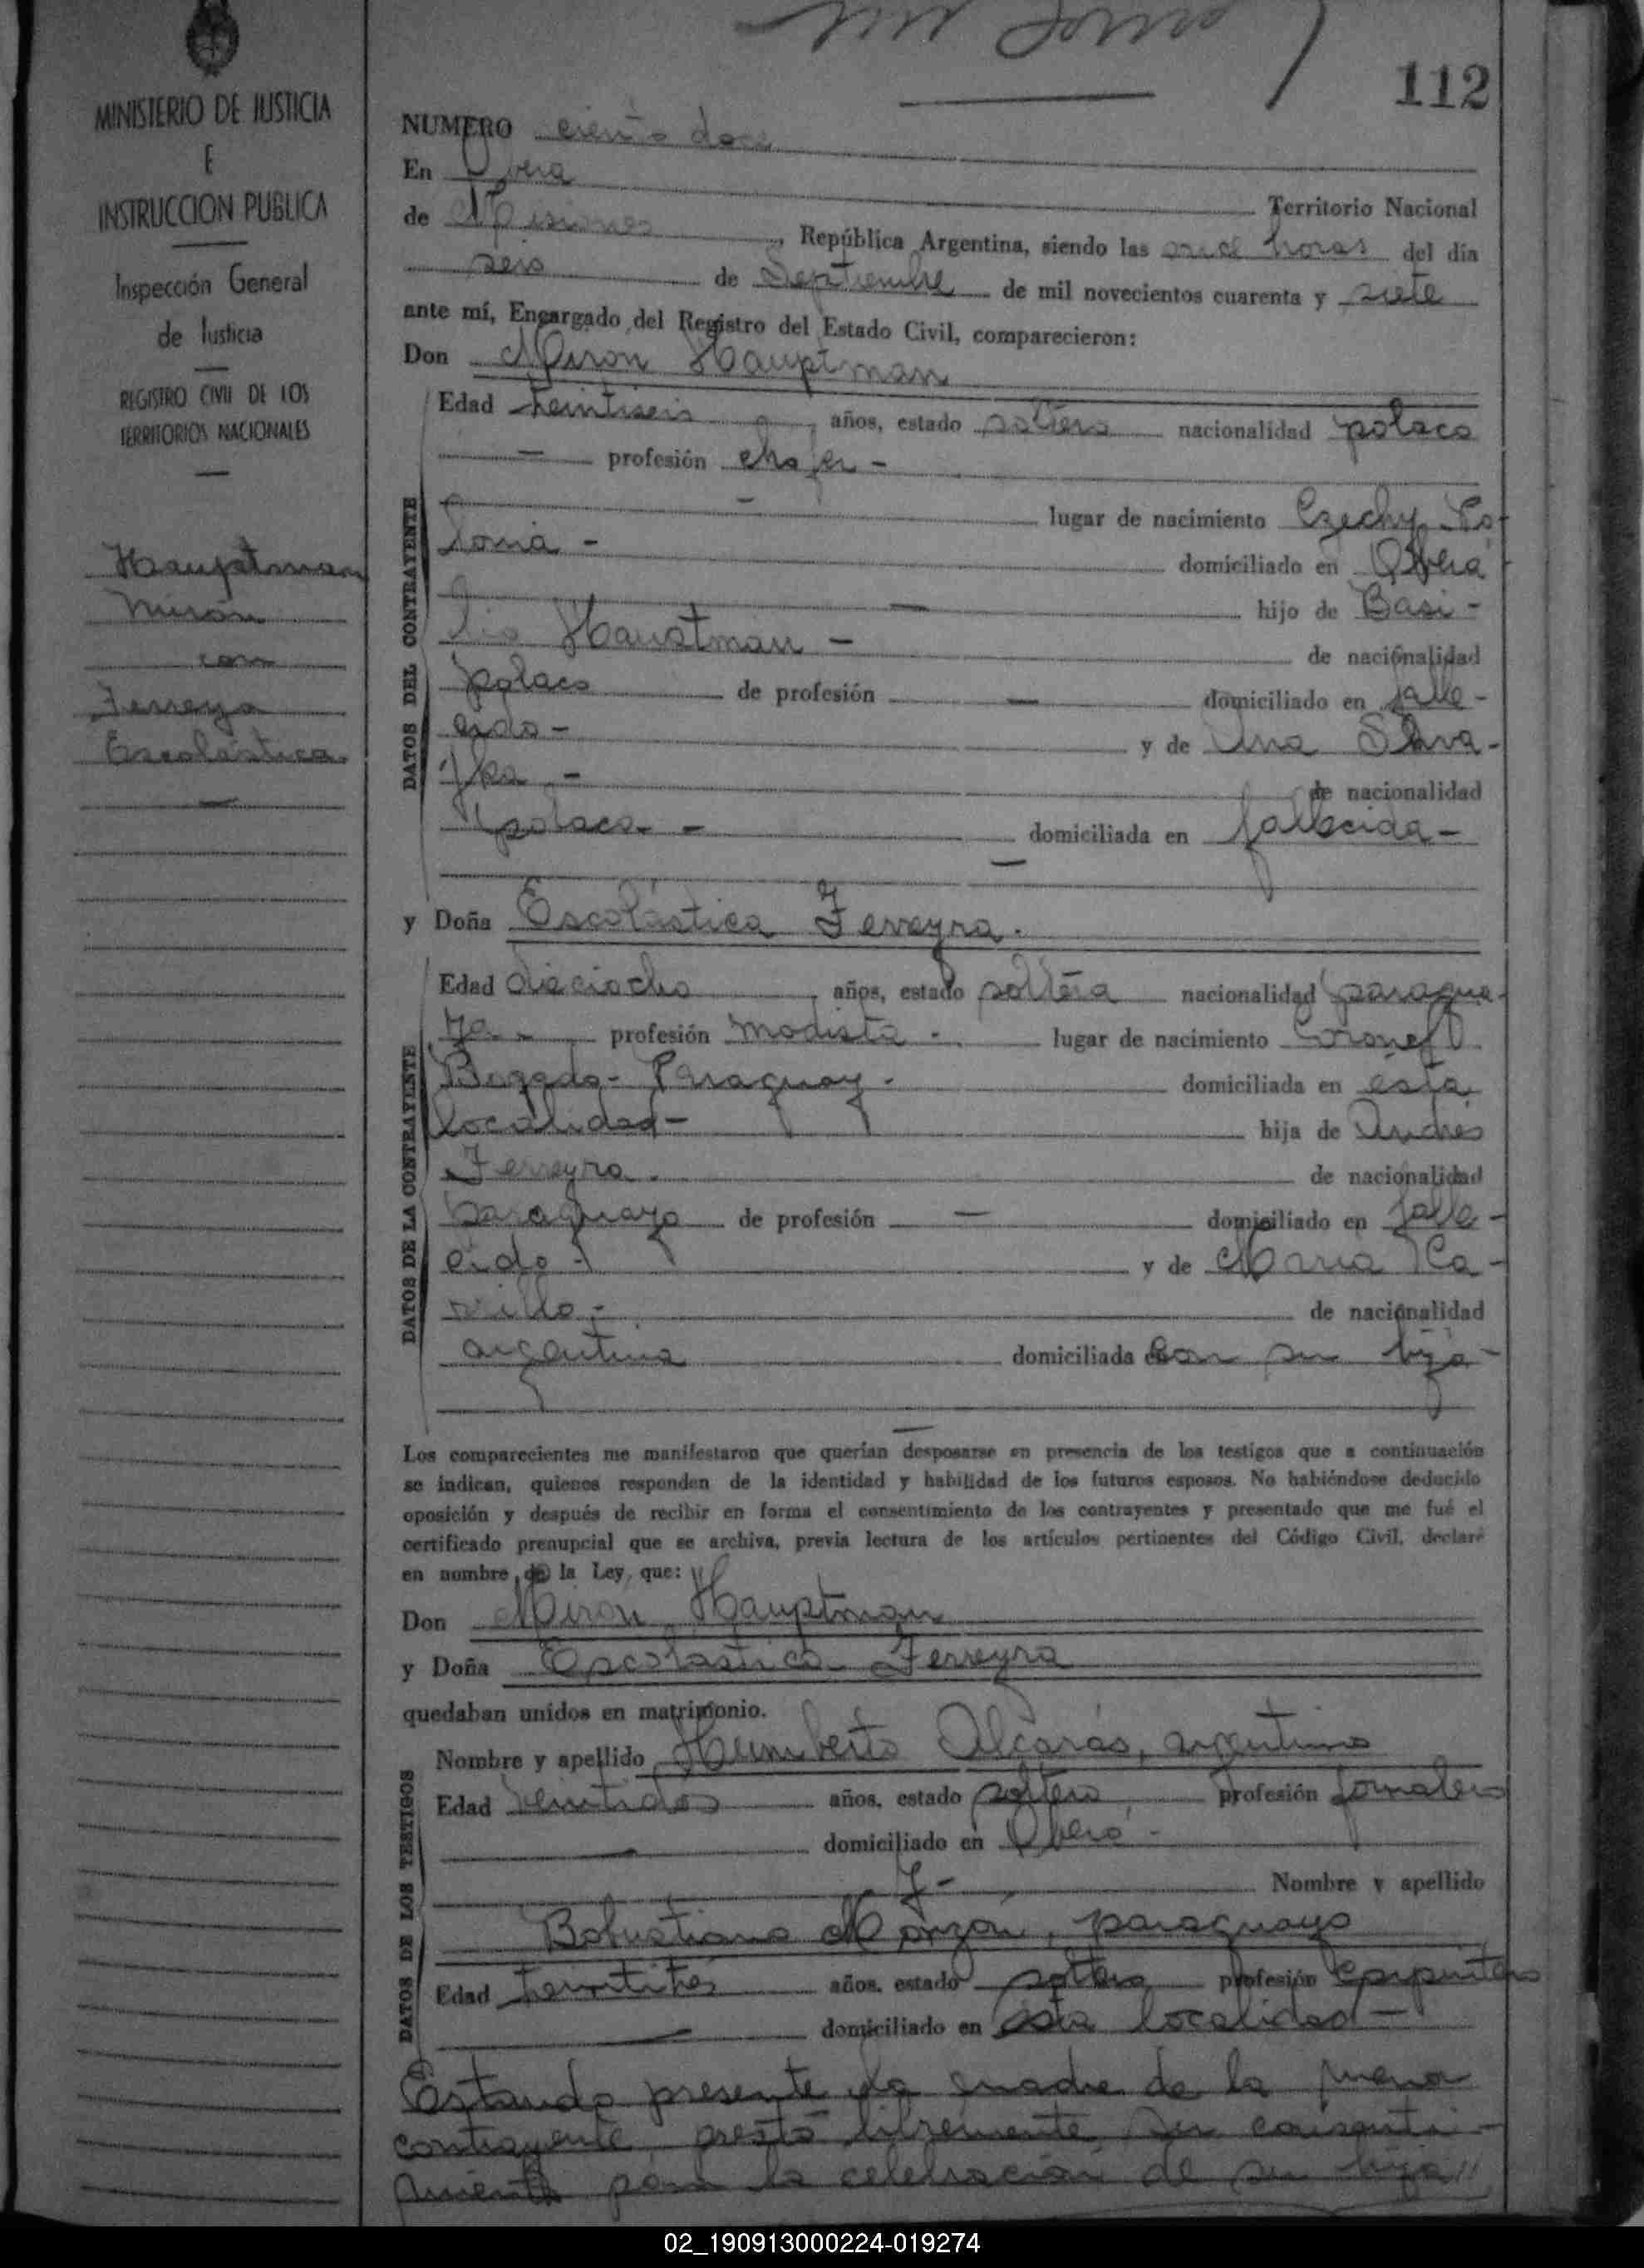 112
MINISTERIO DE JUSTICIA
E
INSTRUCCION PUBLICA
Inspección General
de Justicia
REGISTRO CIVIL DE LOS
TERRITORIOS NACIONALES
Hauptman
Mirón
con
Ferreyra
Escolástica
NUMERO ciento doce
En Oberá
Territorio Nacional
de Misiones, República Argentina, siendo las once horas del día
seis de Septiembre de mil novecientos cuarenta y siete
ante mí, Encargado del Registro del Estado Civil, comparecieron:
Don Mirón Hauptman
DATOS DEL CONTRAYENTE
Edad veintiseis años, estado soltero nacionalidad polaco
— profesión chofer -
— lugar de nacimiento Czechy, Po-
lonia - domiciliado en Oberá
— hijo de Basi-
lio Hauptman - de nacionalidad
polaco de profesión — domiciliado en falle-
cido - y de Ana
- de nacionalidad
polaca - domiciliada en fallecida -
y Doña Escolástica Ferreyra.
DATOS DE LA CONTRAYENTE
Edad dieciocho años, estado soltera nacionalidad paragua-
ya - profesión modista - lugar de nacimiento Coronel
Bogado - Paraguay - domiciliada en esta
localidad - hija de Andrés
Ferreyra. de nacionalidad
paraguayo de profesión — domiciliado en falle-
cido - y de María
de nacionalidad
argentina domiciliada con su hija -
Los comparecientes me manifestaron que querían desposarse en presencia de los testigos que a continuación
se indican, quienes responden de la identidad y habilidad de los futuros esposos. No habiéndose deducido
oposición y después de recibir en forma el consentimiento de los contrayentes y presentado que me fué el
certificado prenupcial que se archiva, previa lectura de los artículos pertinentes del Código Civil, declaré
en nombre de la Ley, que:
Don Mirón Hauptman
y Doña Escolástica Ferreyra
quedaban unidos en matrimonio.
DATOS DE LOS TESTIGOS
Nombre y apellido Humberto Alcarás, argentino
Edad veintidos años, estado soltero, profesión jornalero
— domiciliado en Oberá -
y - Nombre y apellido
Robustiano Monzón, paraguayo
Edad veintitres años, estado soltero profesión carpintero
— domiciliado en esta localidad -
Estando presente la madre de la menor
contrayente prestó libremente su consenti-
miento para la celebración de su hija //
02_190913000224-019274